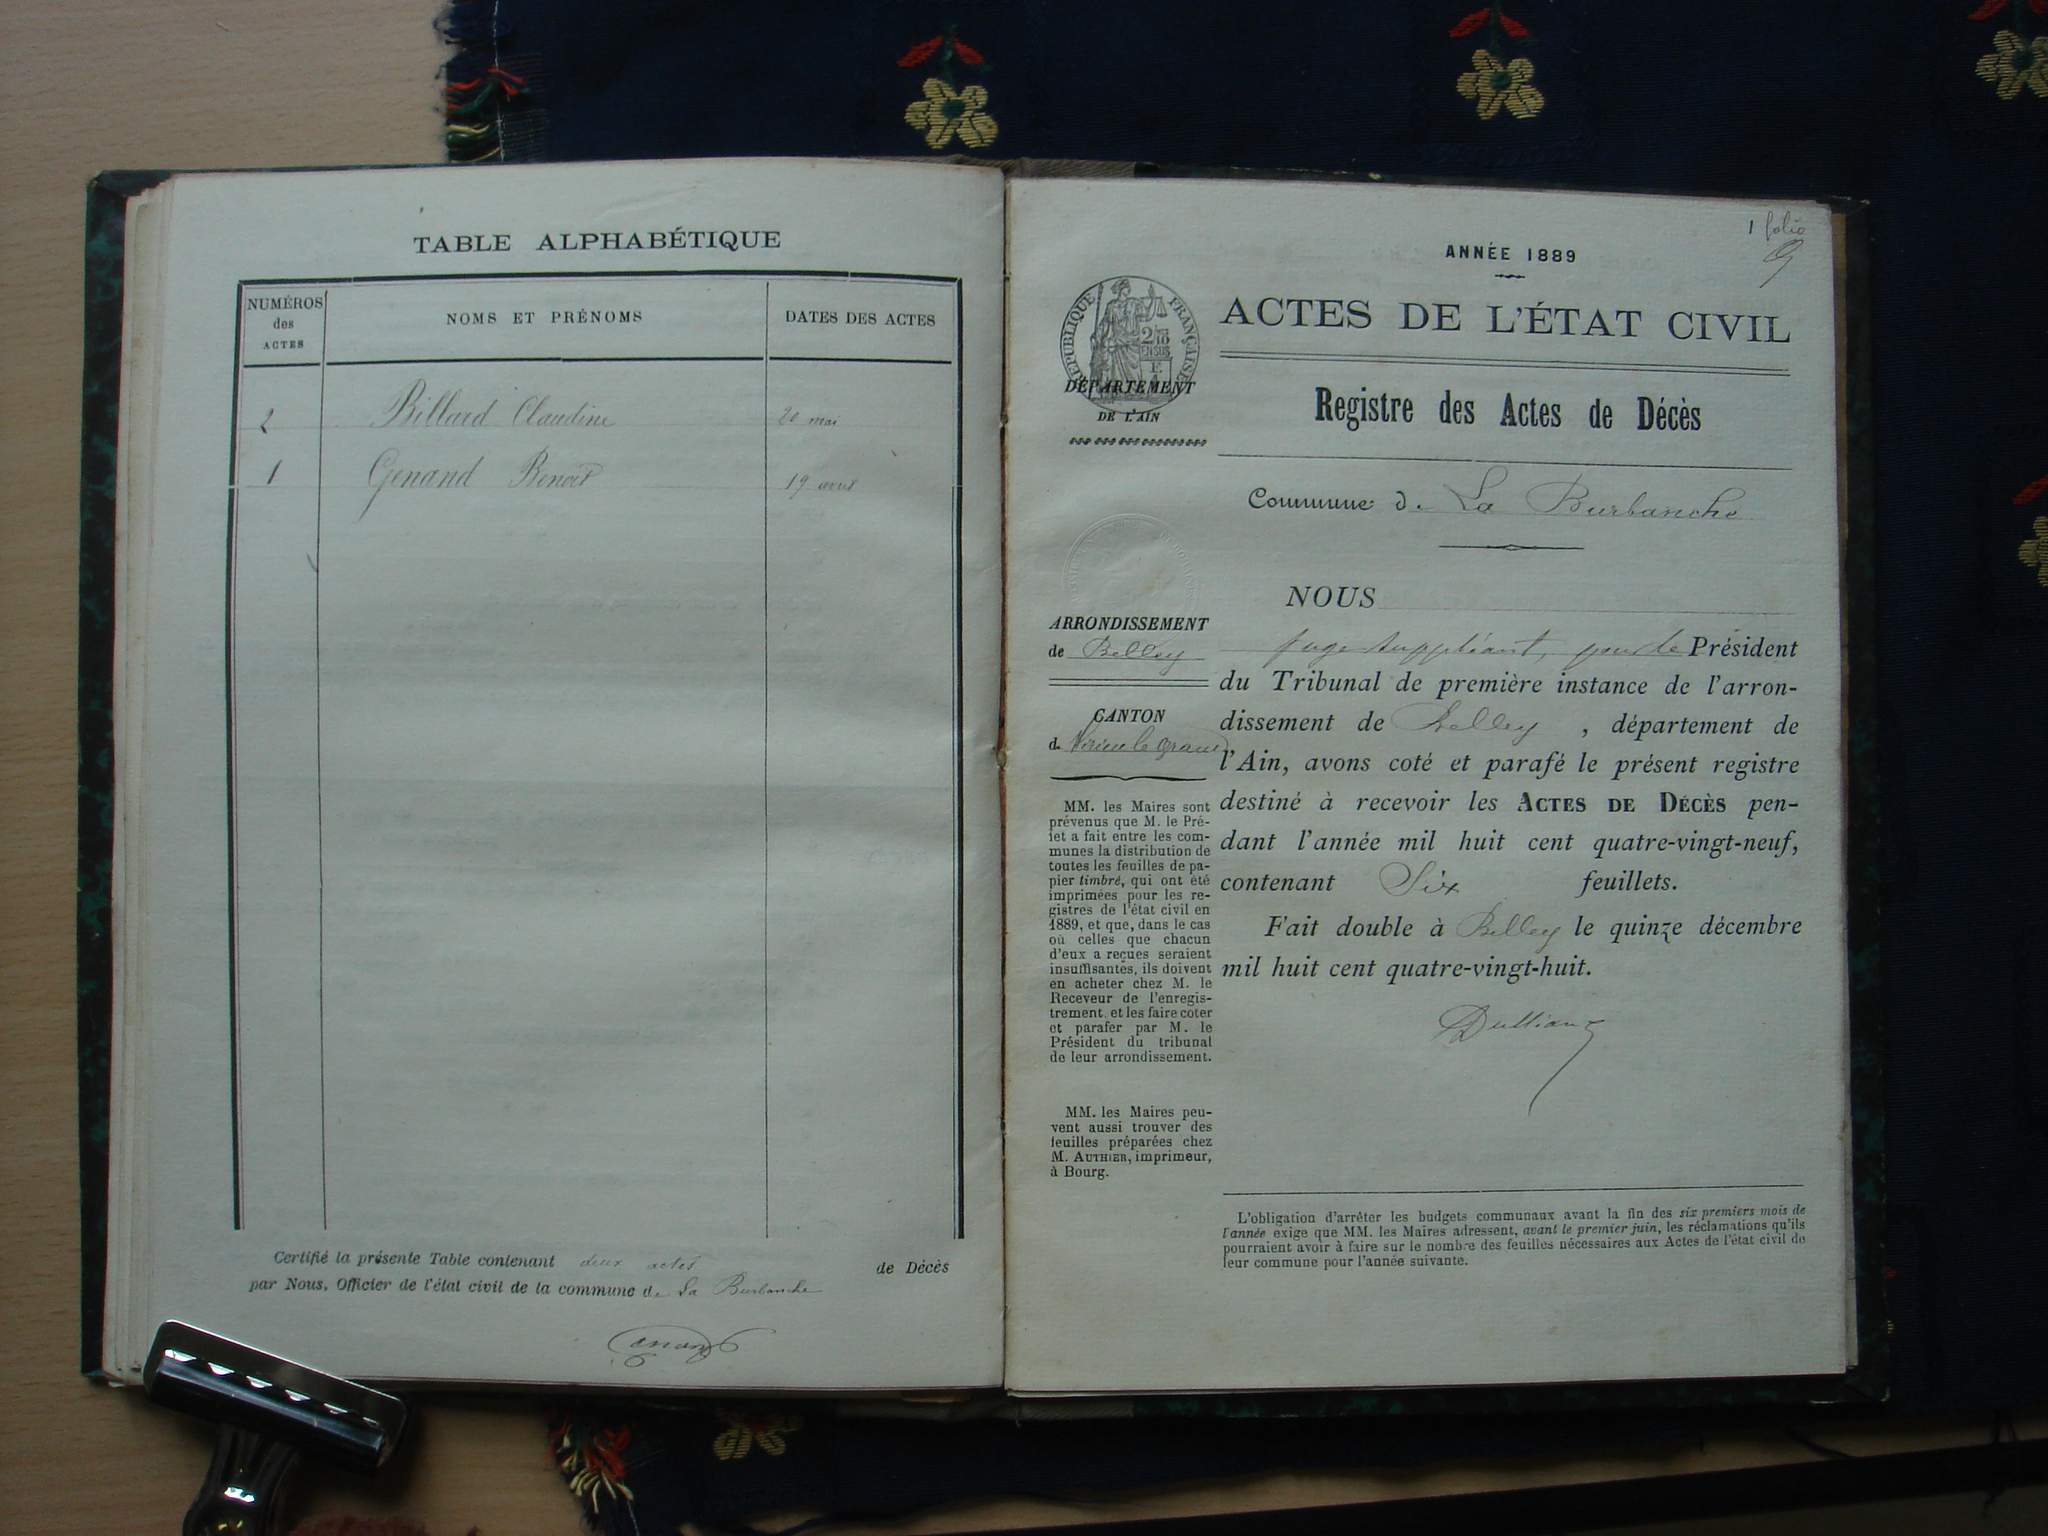 TABLE ALPHABÉTIQUE
NUMÉROS
des
ACTES
NOMS ET PRÉNOMS
DATES DES ACTES
2 Billard Claudine 20 mai
1 Genand Benoit 19 avril
Certifié la présente Table contenant deux actes de Décès
par Nous, Officier de l'état civil de la commune de La Burbanche
1 folio
ANNÉE 1889
RÉPUBLIQUE FRANÇAISE
ACTES DE L'ÉTAT CIVIL
DÉPARTEMENT
DE L'AIN
Registre des Actes de Décès
Commune d. La Burbanche
ARRONDISSEMENT
de Belley
CANTON
d. Virieu le grand
MM. les Maires sont
prévenus que M. le Pré-
fet a fait entre les com-
munes la distribution de
toutes les feuilles de pa-
pier timbré, qui ont été
imprimées pour les re-
gistres de l'état civil en
1889, et que, dans le cas
où celles que chacun
d'eux a reçues seraient
insuffisantes, ils doivent
en acheter chez M. le
Receveur de l'enregis-
trement, et les faire coter
et parafer par M. le
Président du tribunal
de leur arrondissement.
MM. les Maires peu-
vent aussi trouver des
feuilles préparées chez
M. AUTHIER, imprimeur,
à Bourg.
NOUS
juge suppléant, pour le Président
du Tribunal de première instance de l'arron-
dissement de Belley, département de
l'Ain, avons coté et parafé le présent registre
destiné à recevoir les ACTES DE DÉCÈS pen-
dant l'année mil huit cent quatre-vingt-neuf,
contenant Six feuillets.
Fait double à Belley le quinze décembre
mil huit cent quatre-vingt-huit.
L'obligation d'arrêter les budgets communaux avant la fin des six premiers mois de
l'année exige que MM. les Maires adressent, avant le premier juin, les réclamations qu'ils
pourraient avoir à faire sur le nombre des feuilles nécessaires aux Actes de l'état civil de
leur commune pour l'année suivante.